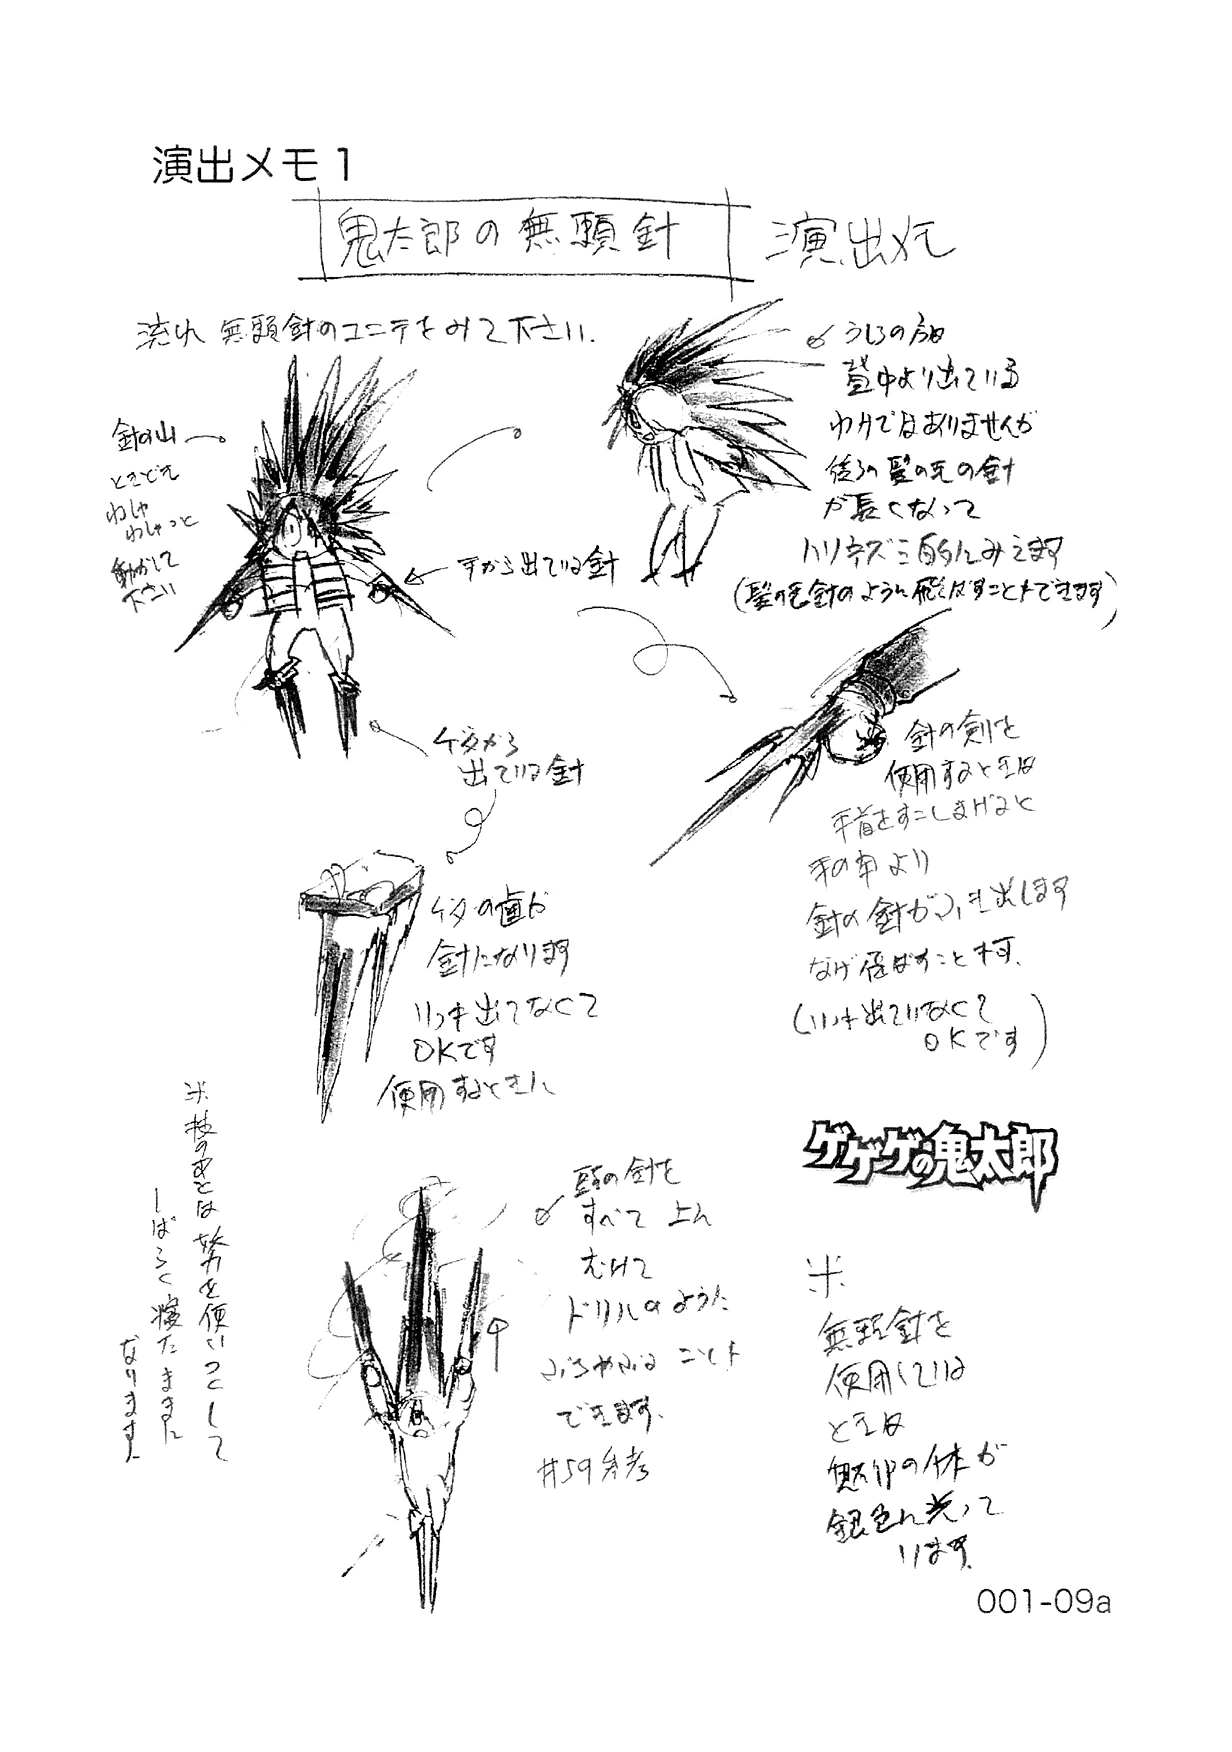 演出メモ1
鬼太郎の無頭針 演出メモ
流れ 無頭針のコンテをみて下さい.
針の山
ときどき
わしゃ
わしゃっと
動かして
下さい
うしろの方は
背中より出ている
わけではありませんが
後ろの髪の毛の針
が長くなって
ハリネズミ的にみえます
(髪の毛針のように飛ばすことも できます)
手から出ている針
ゲタから
出ている針
針の剣を
使用するときは
手首をすこしまげると
手の甲より
針の針がつき出します
なげ飛ばすことも可.
(いつも出ていなくて
OKです)
ゲタの歯が
針になります
いつも出てなくて
OKです
使用するときに
※技のあとは 努力を使いつくして
しばらく寝たままに
なります
頭の針を
すべて 上に
むけて
ドリルのように
ことも
できます.
#59参考
ゲゲゲの鬼太郎
※
無頭針を
使用している
ときは
鬼太郎の体が
銀色に光って
います.
001-09a